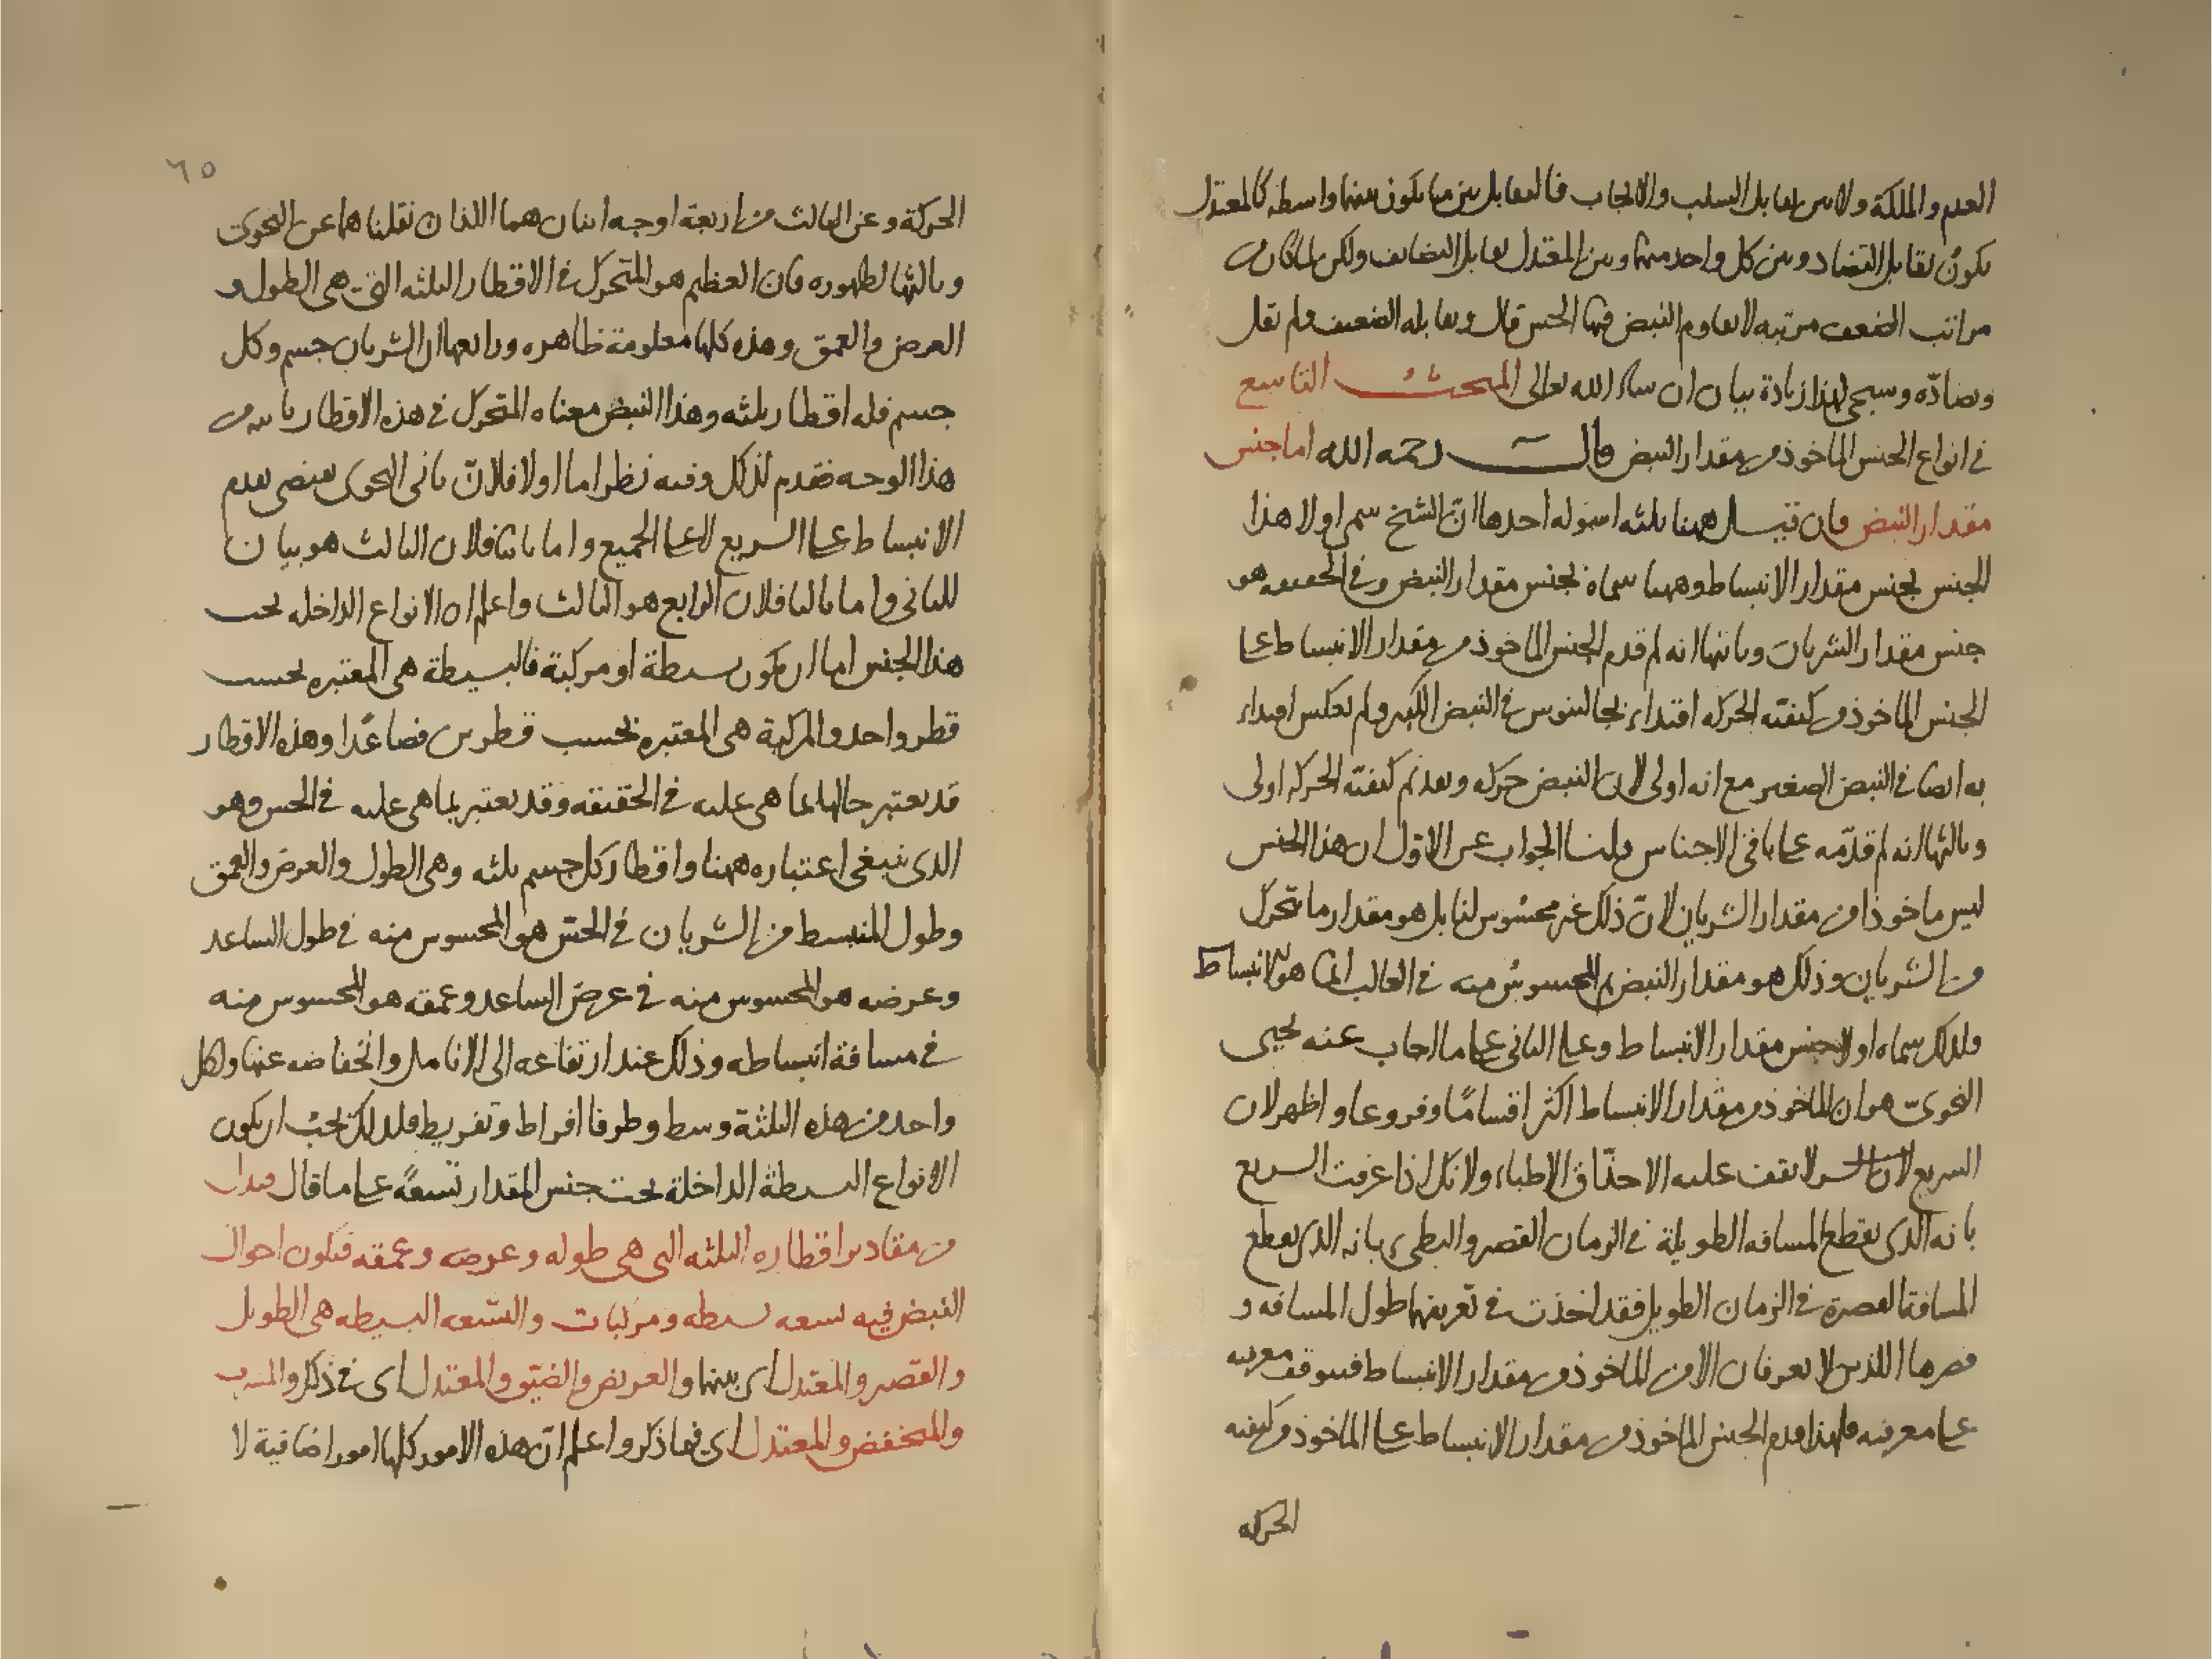 العدم والملكة ولا بين تقابل السلب والايجاب فالتقابل بين ما يكون بينها واسطة كالمعتدل
يكون تقابل التضاد وبين كل واحد منهما وبين المعتدل تقابل التضايف ولكن لما كان من
مراتب الضعف مرتبه لا يقاوم النبض فيها الحس قال ويقابله الضعيف ولم يقل
ويضاده وسيجي لهذا زيادة بيان ان شاء الله تعالى المبحث التاسع
في انواع الجنس الماخوذ من مقدار النبض قال رحمه الله اما جنس
مقدار النبض فان قيل ههنا ثلثه اسوله احدها ان الشيخ سمى اولا هذا
الجنس بجنس مقدار الانبساط وههنا سماه بجنس مقدار النبض وفي الحقيقه هو
جنس مقدار الشريان وثانيها انه لم قدم الجنس الماخوذ من مقدار الانبساط على
الجنس الماخوذ من كيفيته الحركه اقتداء بجالينوس في النبض الكبير ولم يعكس اقتداء
به ايضا في النبض الصغير مع انه اولى لان النبض حركه وتقديم كيفيته الحركه اولى
وثالثها انه لم قدّمه على باقي الاجناس قلنا الجواب عن الاول ان هذا الجنس
ليس ماخوذا من مقدار الشريان لانّ ذلك غير محسوس لنا بل هو مقدار ما يتحرك
من الشريان وذلك هو مقدار النبض ثم المحسوس منه في الغالب انما هو الانبساط
ولذلك سماه اولا بجنس مقدار الانبساط وعلى الثاني على ما اجاب عنه يحيى
النحوىّ هو ان الماخوذ من مقدار الانبساط اكثر اقسامًا وفروعا واظهر لان
السريع لا يقف عليه الا حذّاق الاطباء ولانك اذا عرفت السريع
بانه الذى يقطع المسافه الطويلة في الزمان القصير والبطىء بانه الذى يقطع
المسافة القصيرة في الزمان الطويل فقد اخذت في تعريفها طول المسافه و
قصرها اللذين لا يعرفان الا من الماخوذ من مقدار الانبساط فيتوقف معرفته
على معرفته فلهذا قدم الجنس الماخوذ من مقدار الانبساط على الماخوذ من كيفيه
الحركه
٦٥
الحركة وعن الثالث من اربعة اوجه اثنان هما اللذان نقلناهما عن النحوى
وثالثها لظهوره فان العظيم هو المتحرك في الاقطار الثلثه التي هي الطول و
العرض والعمق وهذه كلها معلومة ظاهره ورابعها ان الشريان جسم وكل
جسم فله اقطار ثلثه وهذا النبض معناه المتحرك في هذه الاقطار من
هذا الوجه فقدم لذلك وفيه نظر اما اولا فلانّ ثاني النحوى يقتضى تقدم
الانبساط على السريع لا على الجميع واما ثانيا فلان الثالث هو بيان
للثانى واما ثالثا فلان الرابع هو الثالث واعلم ان الانواع الداخله تحت
هذا الجنس اما ان يكون بسيطة او مركبة فالبسيطة هي المعتبره بحسب
قطر واحد والمركبة هي المعتبره بحسب قطرين فصاعدًا وهذه الاقطار
قد يعتبر حالها بما هي عليه في الحقيقه وقد يعتبر بما هي عليه في الحس وهو
الذى ينبغي اعتباره ههنا واقطار كل جسم ثلثه وهي الطول والعرض والعمق
وطول المنبسط من الشريان في الحسّ هو المحسوس منه في طول الساعد
وعرضه هو المحسوس منه في عرض الساعد وعمقه هو المحسوس منه
في مسافة انبساطه وذلك عند ارتفاعه الى الانامل وانخفاضه عنها ولكل
واحد من هذه الثلثة وسط وطرفا افراط وتفريط فلذلك يجب ان يكون
الانواع البسيطة الداخلة تحت جنس المقدار تسعةً على ما قال فيدل
من مقادير اقطاره الثلثه التي هي طوله وعرضه وعمقه فيكون احوال
النبض فيه تسعه بسيطه ومركبات والتسعه البسيطه هي الطويل
والقصير والمعتدل اى بينها والعريض والضيّق والمعتدل اى في ذلك والمشرف
والمنخفض والمعتدل اى فيما ذكر واعلم انّ هذه الامور كلها امور اضافية لا